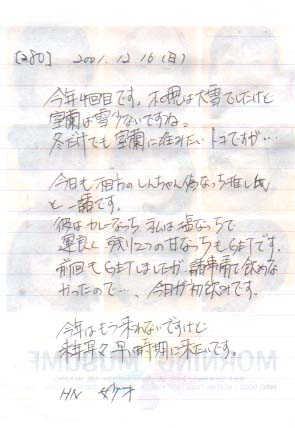 [280] 2001. 12. 16 (日)
今年4回目です。札幌は大雪でしたけど
室蘭は雪少ないですね。
冬だけでも室蘭に住みたいトコですが…
今日も相方のしんちゃん
と一緒です。
彼はカレーなっち 私は塩なっちで
運良く残り2つの甘なっちもGETです。
前回もGETしましたが、諸事情で飲めな
かったので…、今日が初飲みです。
今年はもう来れないですけど
来年早々早い時期に来たいです。
HN
MORNING MUSUME